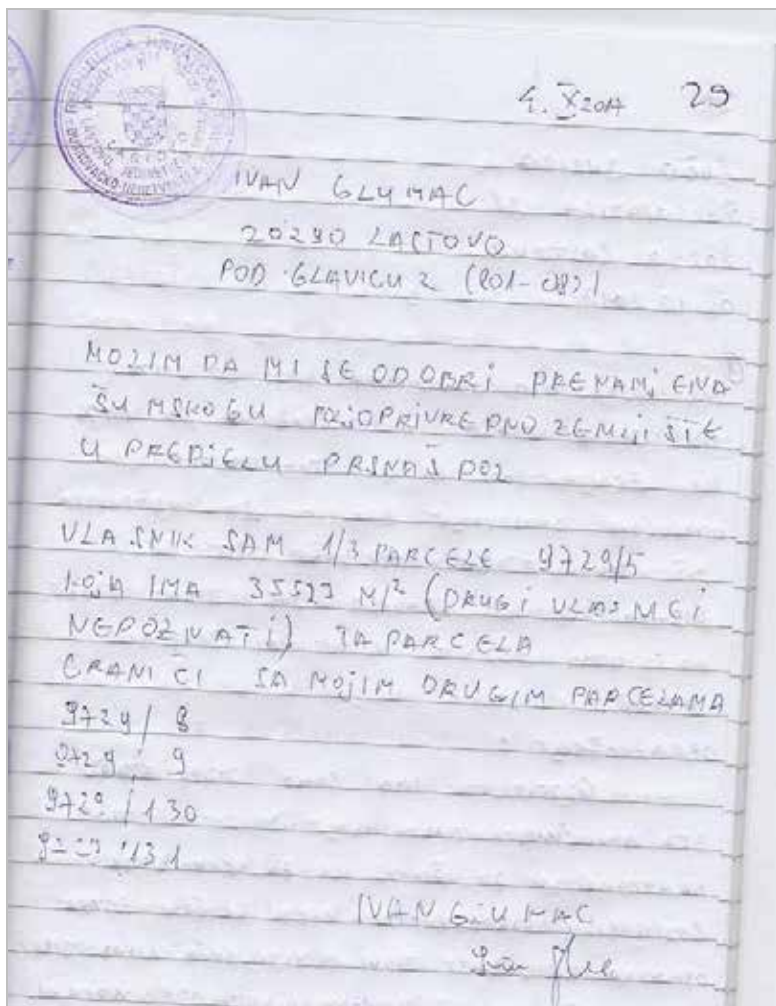 REPUBLIKA HRVATSKA
DUBROVAČKO-NERETVANSKA
4. X 2017 29
IVAN GLUMAC
20290 LASTOVO
POD GLAVICU 2 (801-087)
MOLIM DA MI SE ODOBRI PRENAMJENA
ŠUMSKOG U POLJOPRIVREDNO ZEMLJIŠTE
U PREDJELU PRSNAŠ POL
VLASNIK SAM 1/3 PARCELE 9729/5
KOJA IMA 35523 M/² (DRUGI VLASNICI
NEPOZNATI) TA PARCELA
GRANIČI SA MOJIM DRUGIM PARCELAMA
9729/8
9729/9
9729/130
9729/131
IVAN GLUMAC